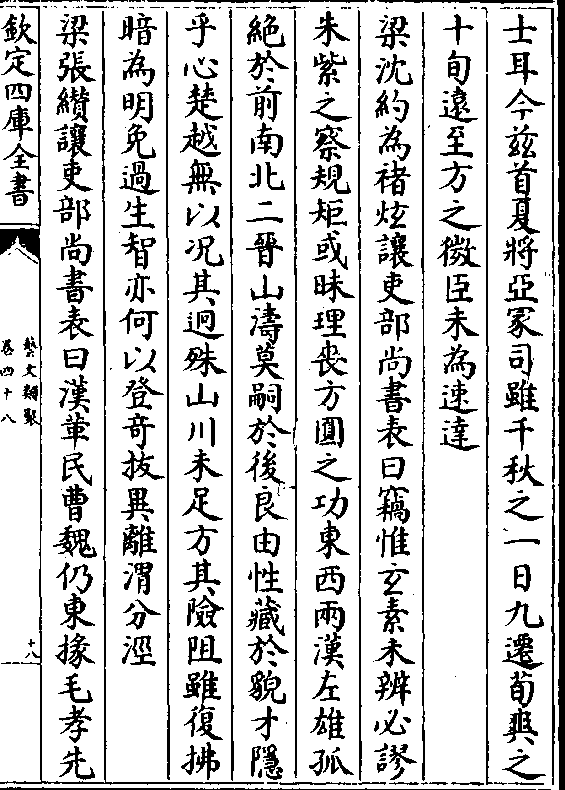 士耳今兹首夏將亞冢司雖千秋之一日九遷荀爽之
十旬遠至方之微臣未為速達
梁沈約為禇炫讓吏部尚書表曰竊惟玄素未辨必謬
朱紫之察規矩或昧理喪方圓之功東西兩漢左雄孤
絶於前南北二晉山濤莫嗣於後良由性藏於貌才隱
乎心楚越無以况其迥殊山川未足方其險阻雖復拂
暗為明免過生智亦何以登竒抜異離渭分涇
梁張纘讓吏部尚書表曰漢革民曹魏仍東掾毛孝先
欽定四庫全書
藝文類聚
卷四十八
十八